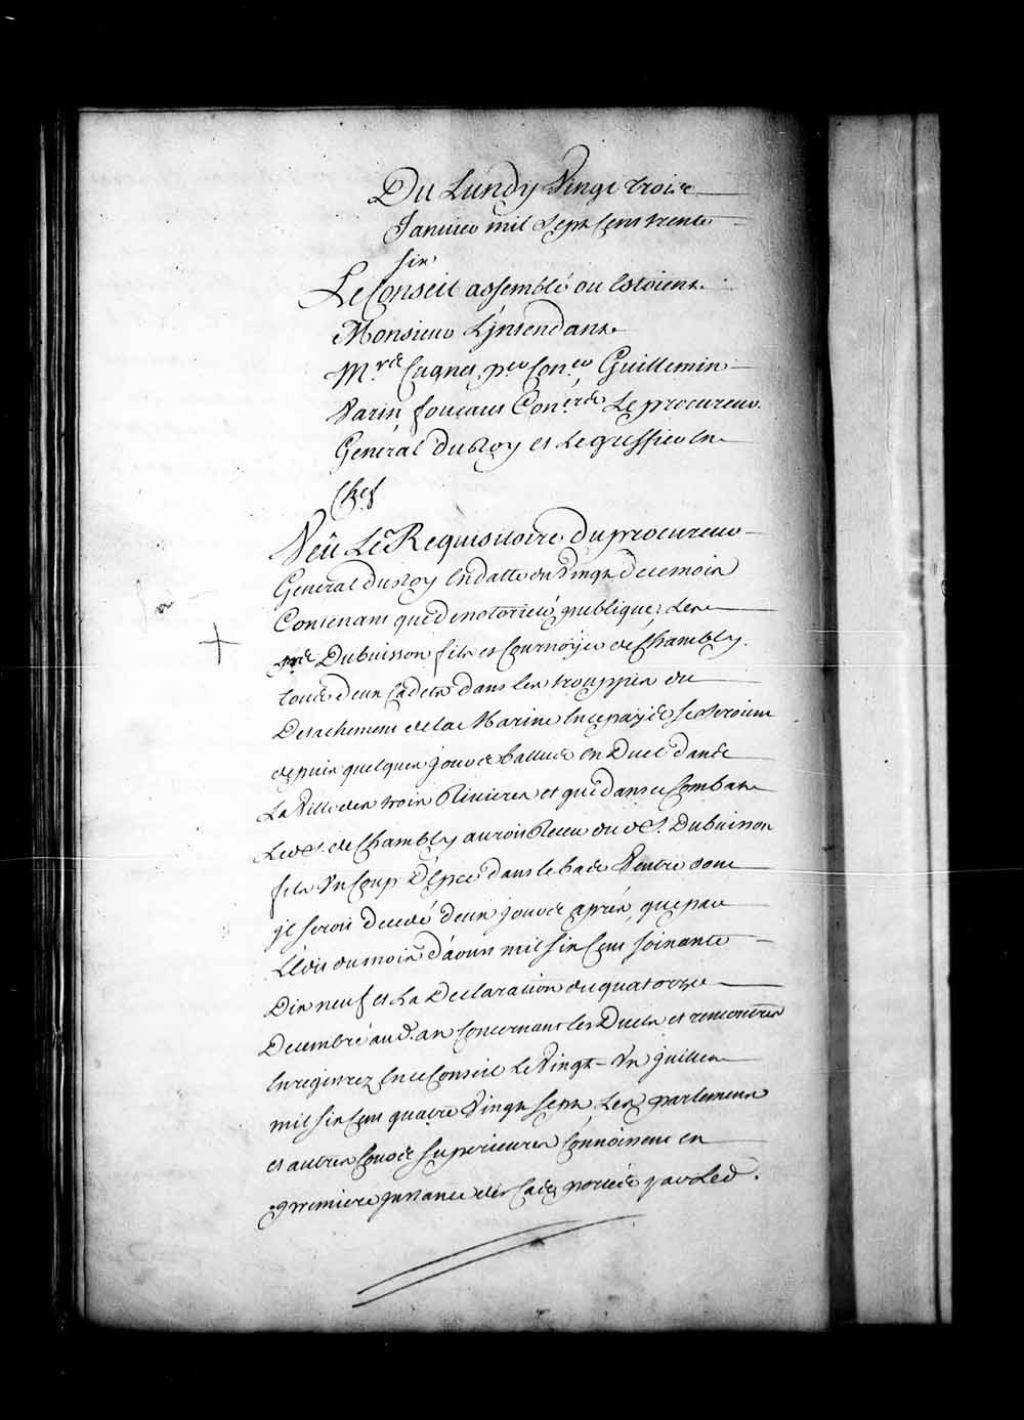 Du Lundy Vingt trois
Janvier mil Sept Cent trente
six
Le Conseil assemblé ou Estoient
Monsieur L'jntendant
M.rs Cugnet, p.er Con.er Guillemin
Varin foucaut Con.ers Le procureur
General du Roy et Le greffier En
Chef
Veü Le Requisitoire du procureur
General du Roy En datte du Vingt de ce mois
Contenant que de notorieté publique, Les
s.rs Dubuisson fils et Cournoyer de Chambly
tous deux Cadets dans les trouppes du
Detachement de la Marine En ce pays Se Seroient
depuis quelques jours battus en Duel dans
La Ville des trois Rivieres et que dans ce Combat
Led. S. de Chambly auroit Receu du d. S. Dubuisson
fils Un Coup d'Epée dans le bas Ventre dont
jl seroit decedé deux jours après, que par
L'Edit du mois d'aoust mil six Cent soixante
Dix neuf et La Declaration du quatorze
Decembre aud. an Concernant les Duels et rencontres
Enregistrez En ce Conseil Le Vingt-Un juillet
mil six Cent quatre Vingt sept, Les parlemens
et autres Cours superieures Connoissent en
premiere jnstance des Cas portés par Led.